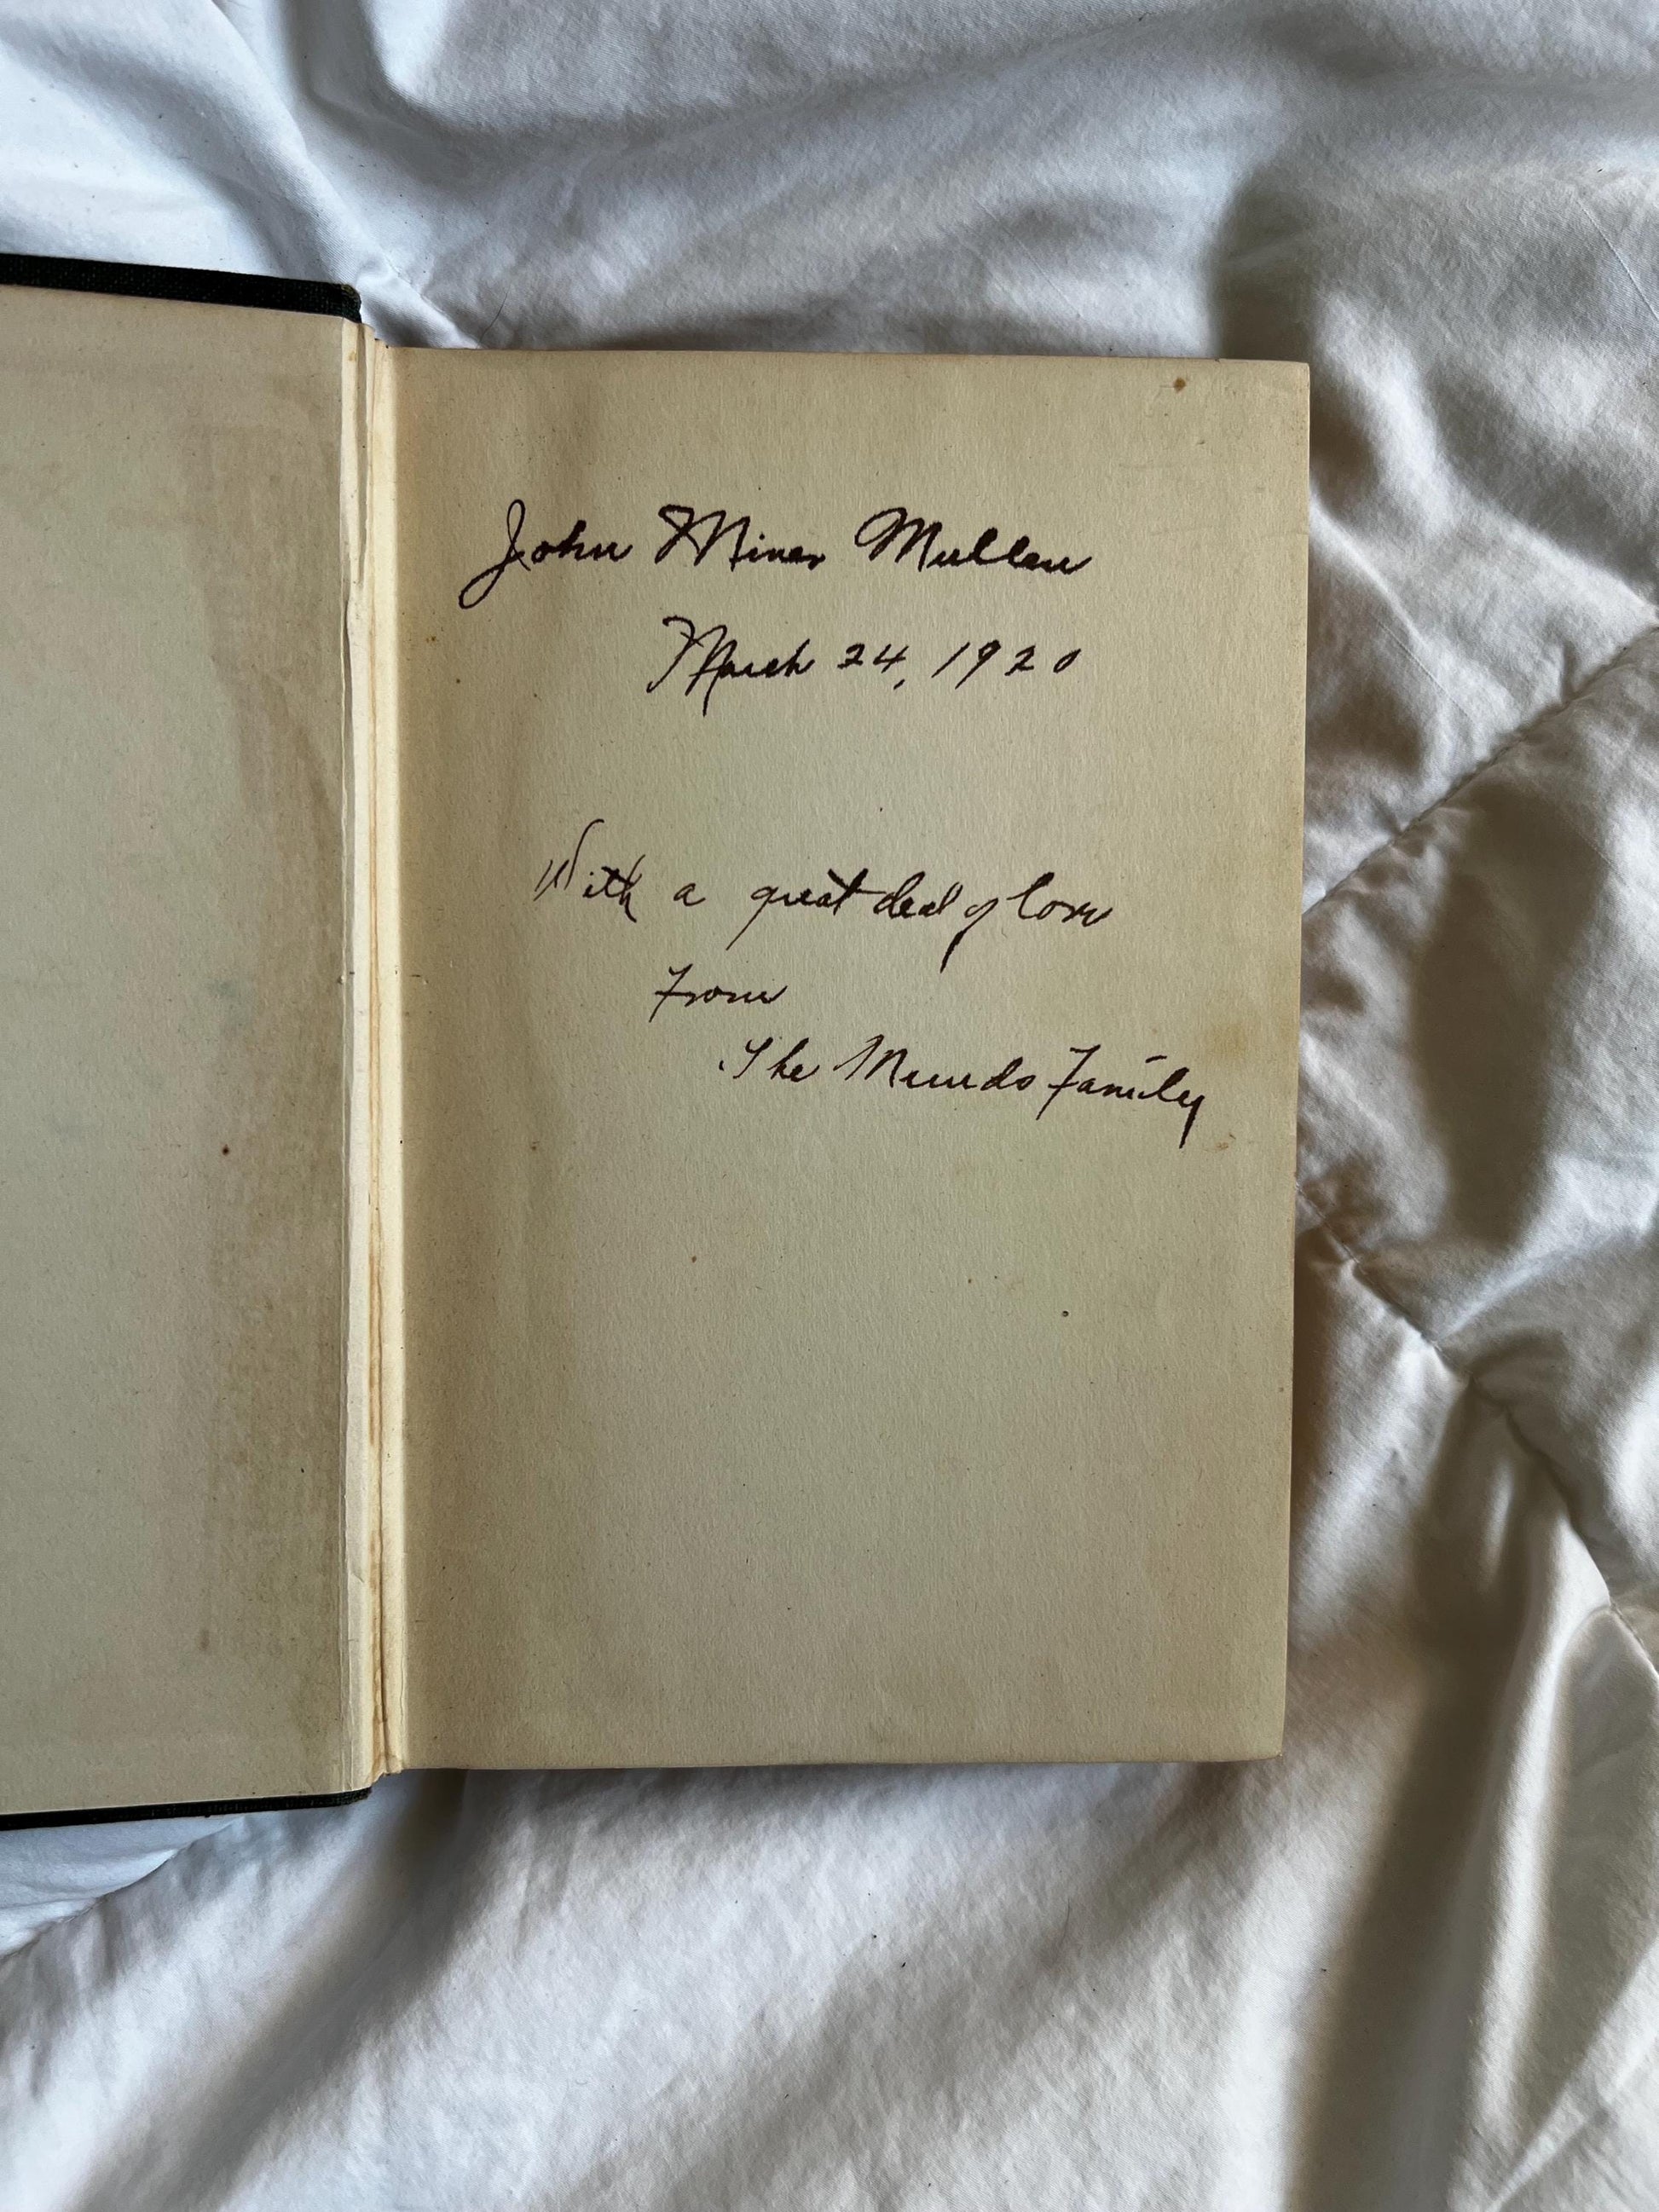 John Miner Mullen
March 24, 1920
With a great deal of love
From
The Mundo Family